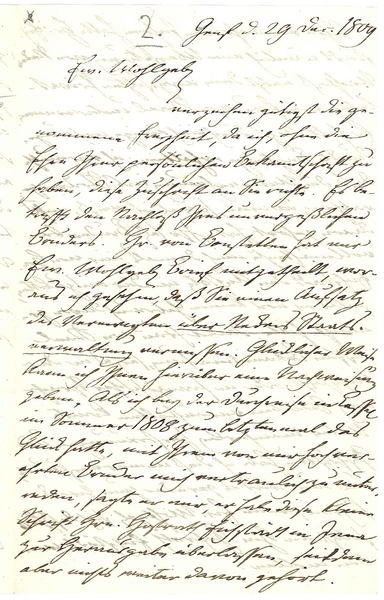 2.
Genf d. 29 Dec. 1809
Ew. Wohlgeb.
verzeihen gütigst die ge-
nommene Freyheit, da ich, ohne die
Ehre Ihrer persönlichen Bekanntschaft zu
haben, diese Zuschrift an Sie richte. Es be-
trifft den Nachlaß Ihres unvergeßlichen
Bruders. Hr. von Bonstetten hat mir
Ew. Wohlgeb. Brief mitgetheilt, wor-
aus ich gesehen, daß Sie einen Aufsatz
des Verewigten über Neckers Staats-
verwaltung vermissen. Glücklicher Weise
kann ich Ihnen hierüber eine Nachweisung
geben. Als ich bey der Durchreise in Cassel
im Sommer 1808 zum letztenmal das
Glück hatte, mit Ihrem von mir hochver-
ehrten Bruder mich vertraulich zu unter-
reden, sagte er mir er habe diese kleine
Schrift Hrn. Hofrath Eichstädt in Jena
zur Herausgabe überlassen, seitdem
aber nichts weiter davon gehört.